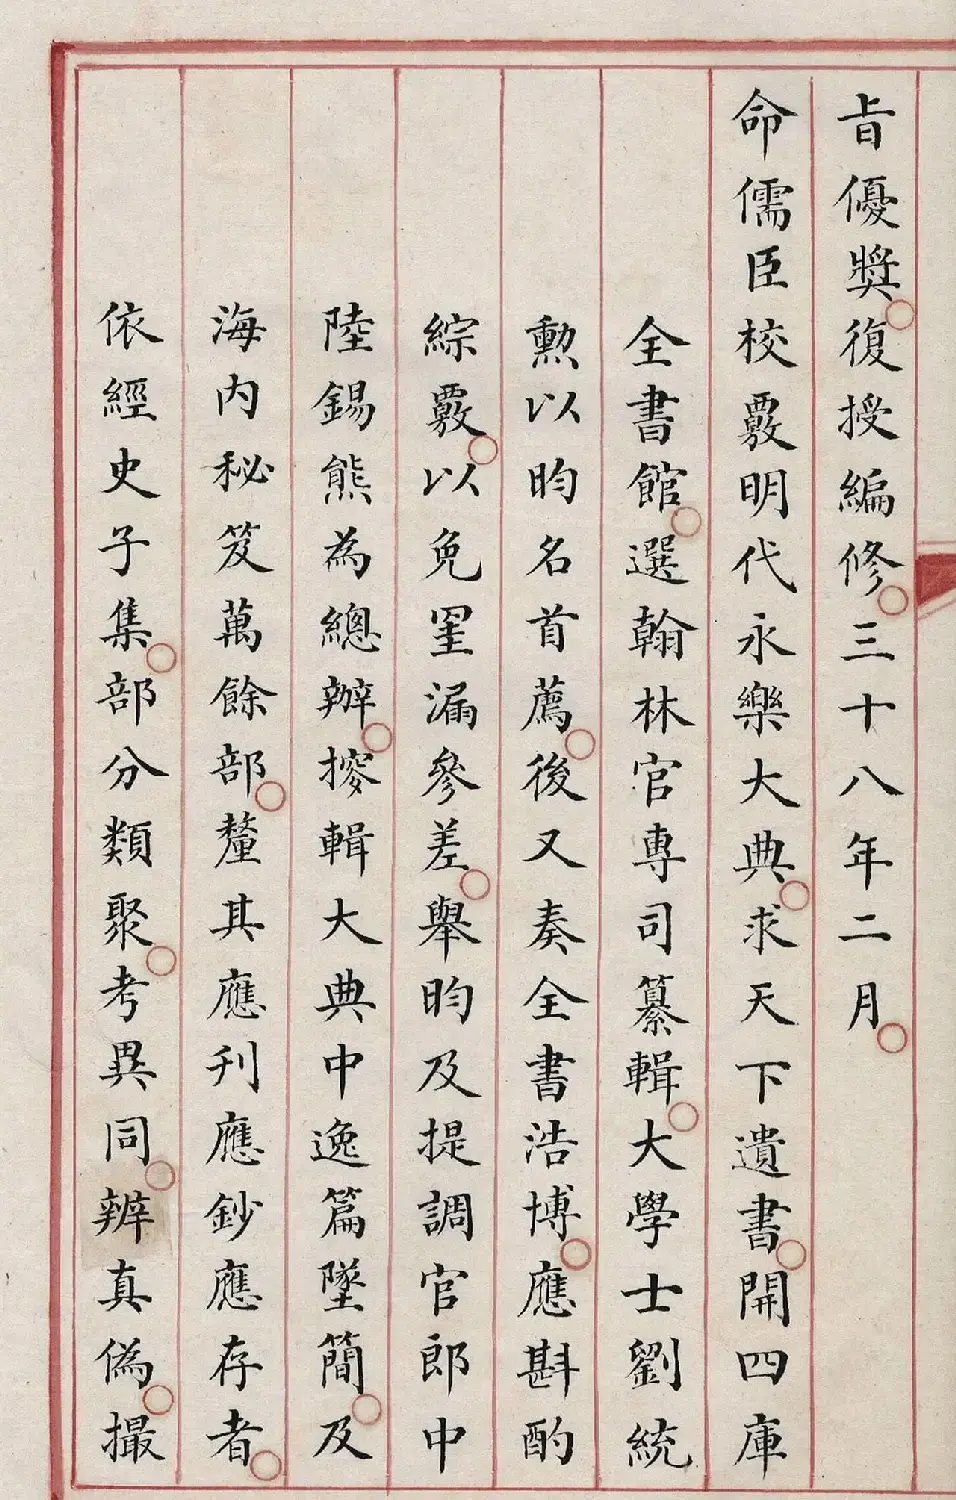 㫖優獎。復授編修。三十八年二月。
命儒臣校覈明代永樂大典。求天下遺書。開四庫
全書館。選翰林官專司纂輯。大學士劉統
勲以昀名首薦。後又奏全書浩博。應斟酌
綜覈。以免罣漏參差。舉昀及提調官郎中
陸錫熊為總辦。摉輯大典中逸篇墜簡。及
海内秘笈萬餘部。釐其應刋應鈔應存者。
依經史子集。部分類聚。考異同。辨真偽。撮